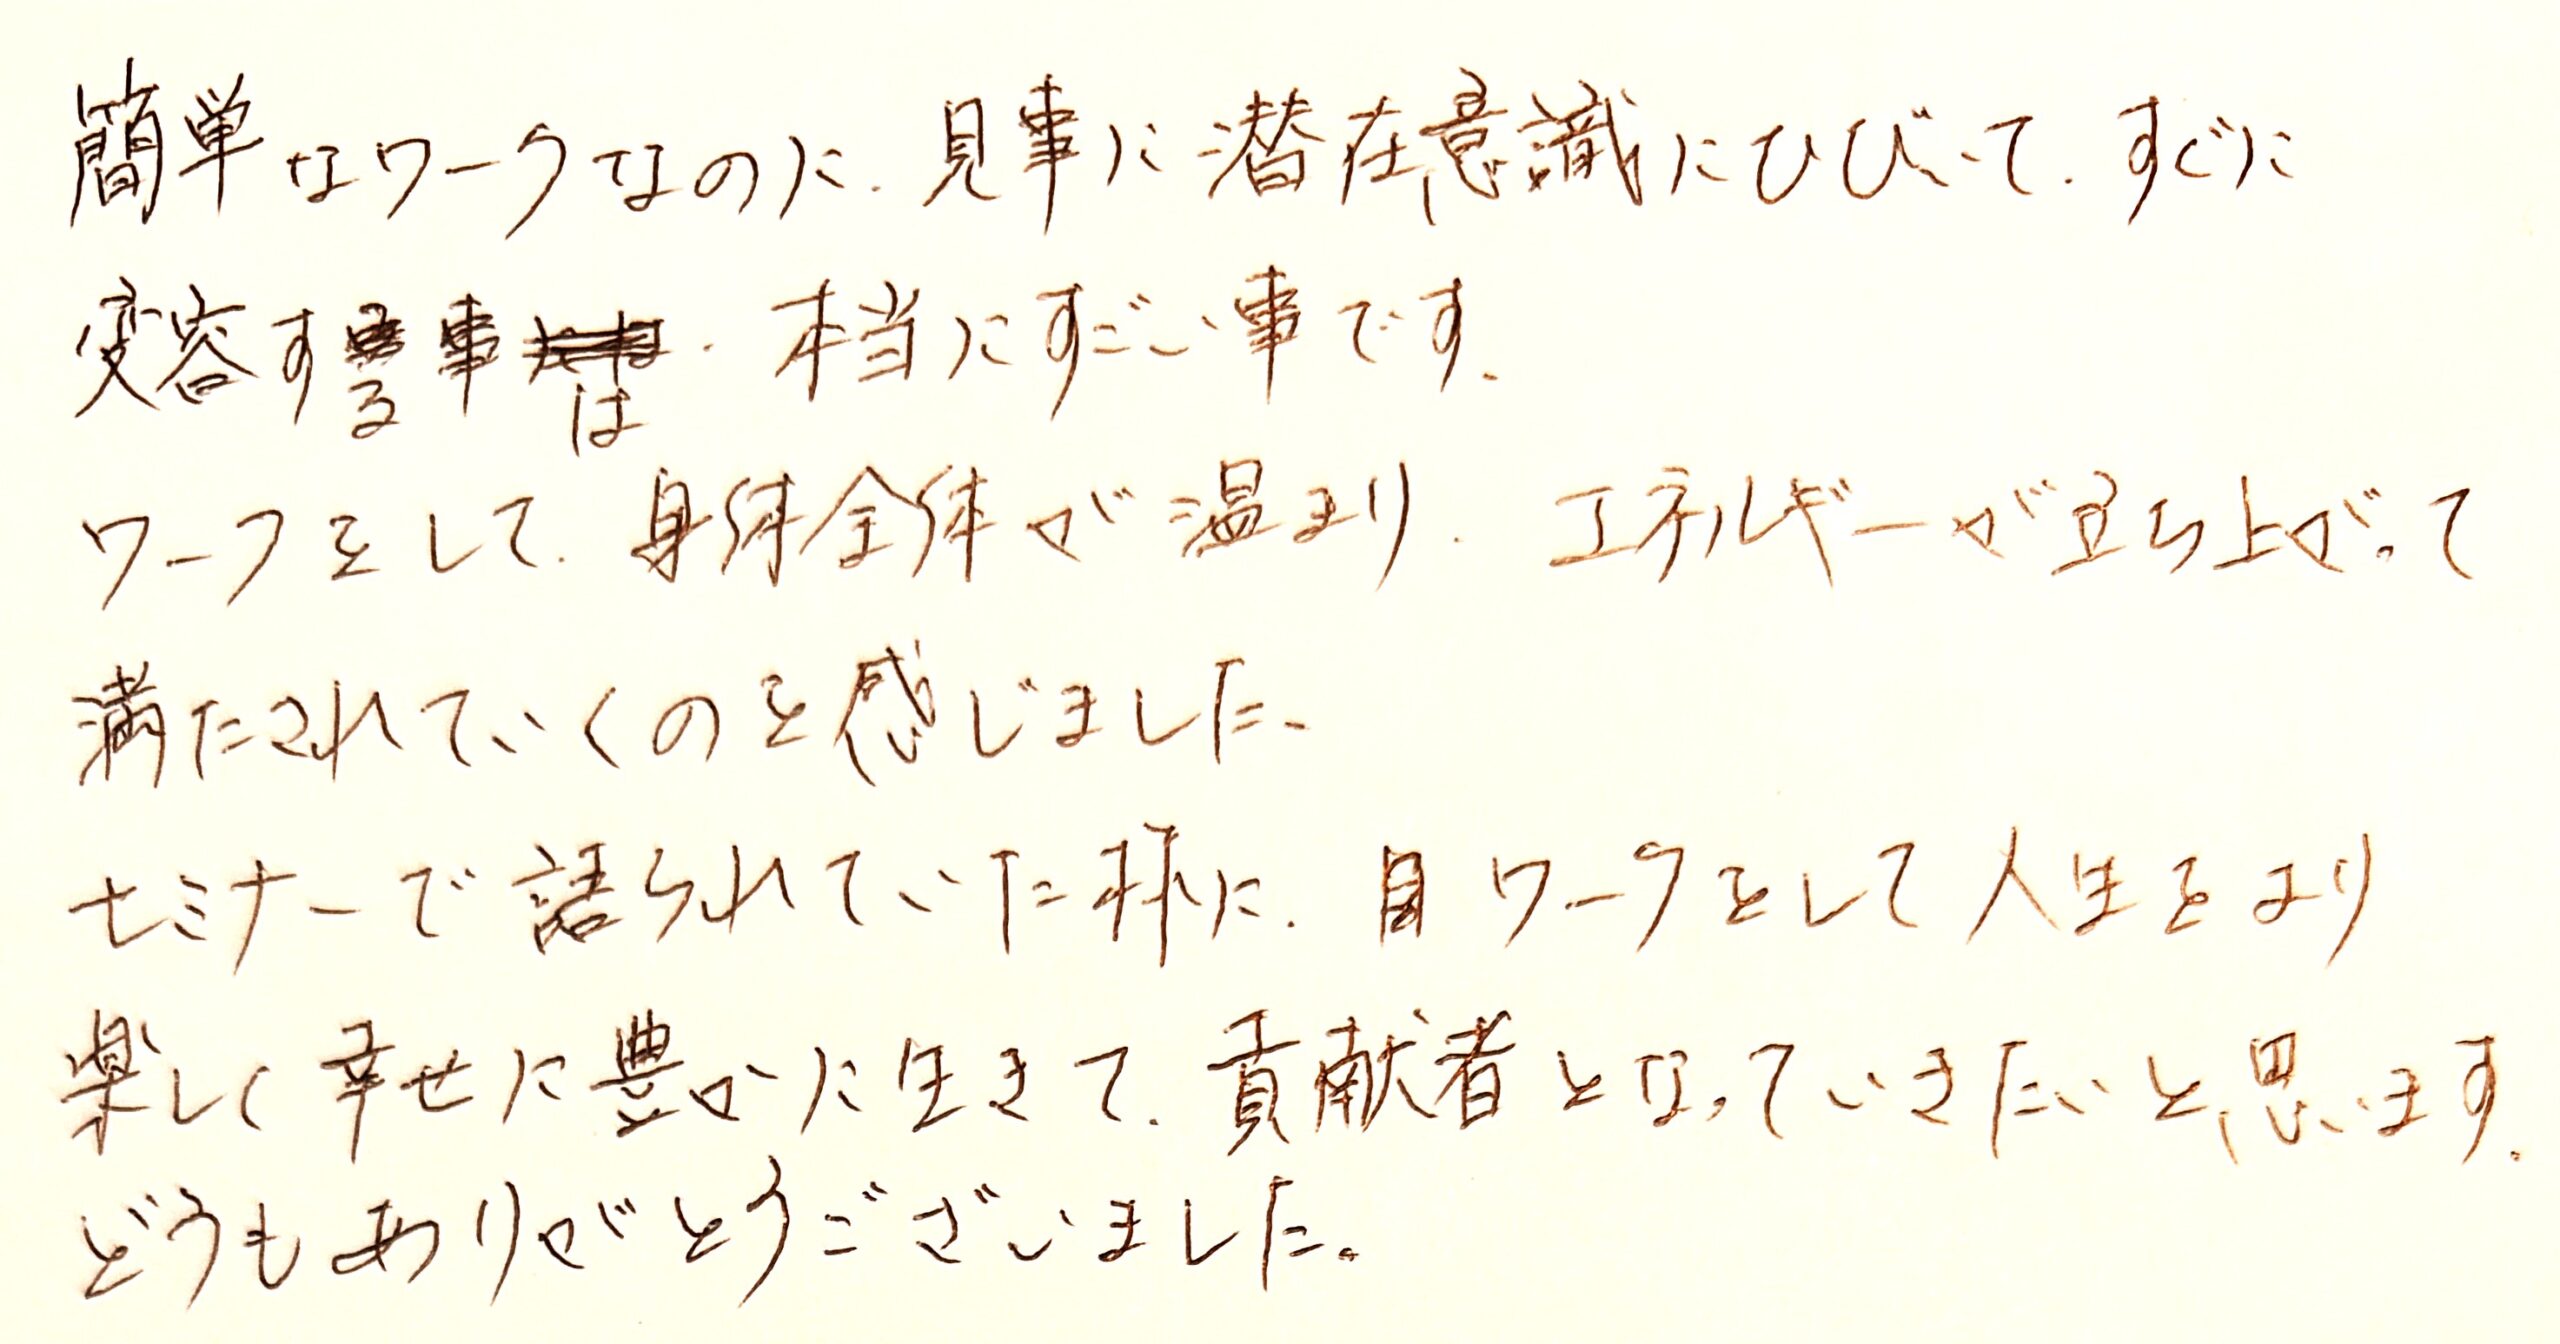 簡単なワークなのに、見事に潜在意識にひびいて、すぐに
変容する事は、本当にすごい事です。
ワークをして、身体全体が温まり、エネルギーが立ち上がって
満たされていくのを感じました。
セミナーで語られていた様に、自ワークをして人生をより
楽しく幸せに豊かに生きて、貢献者となっていきたいと思います。
どうもありがとうございました。